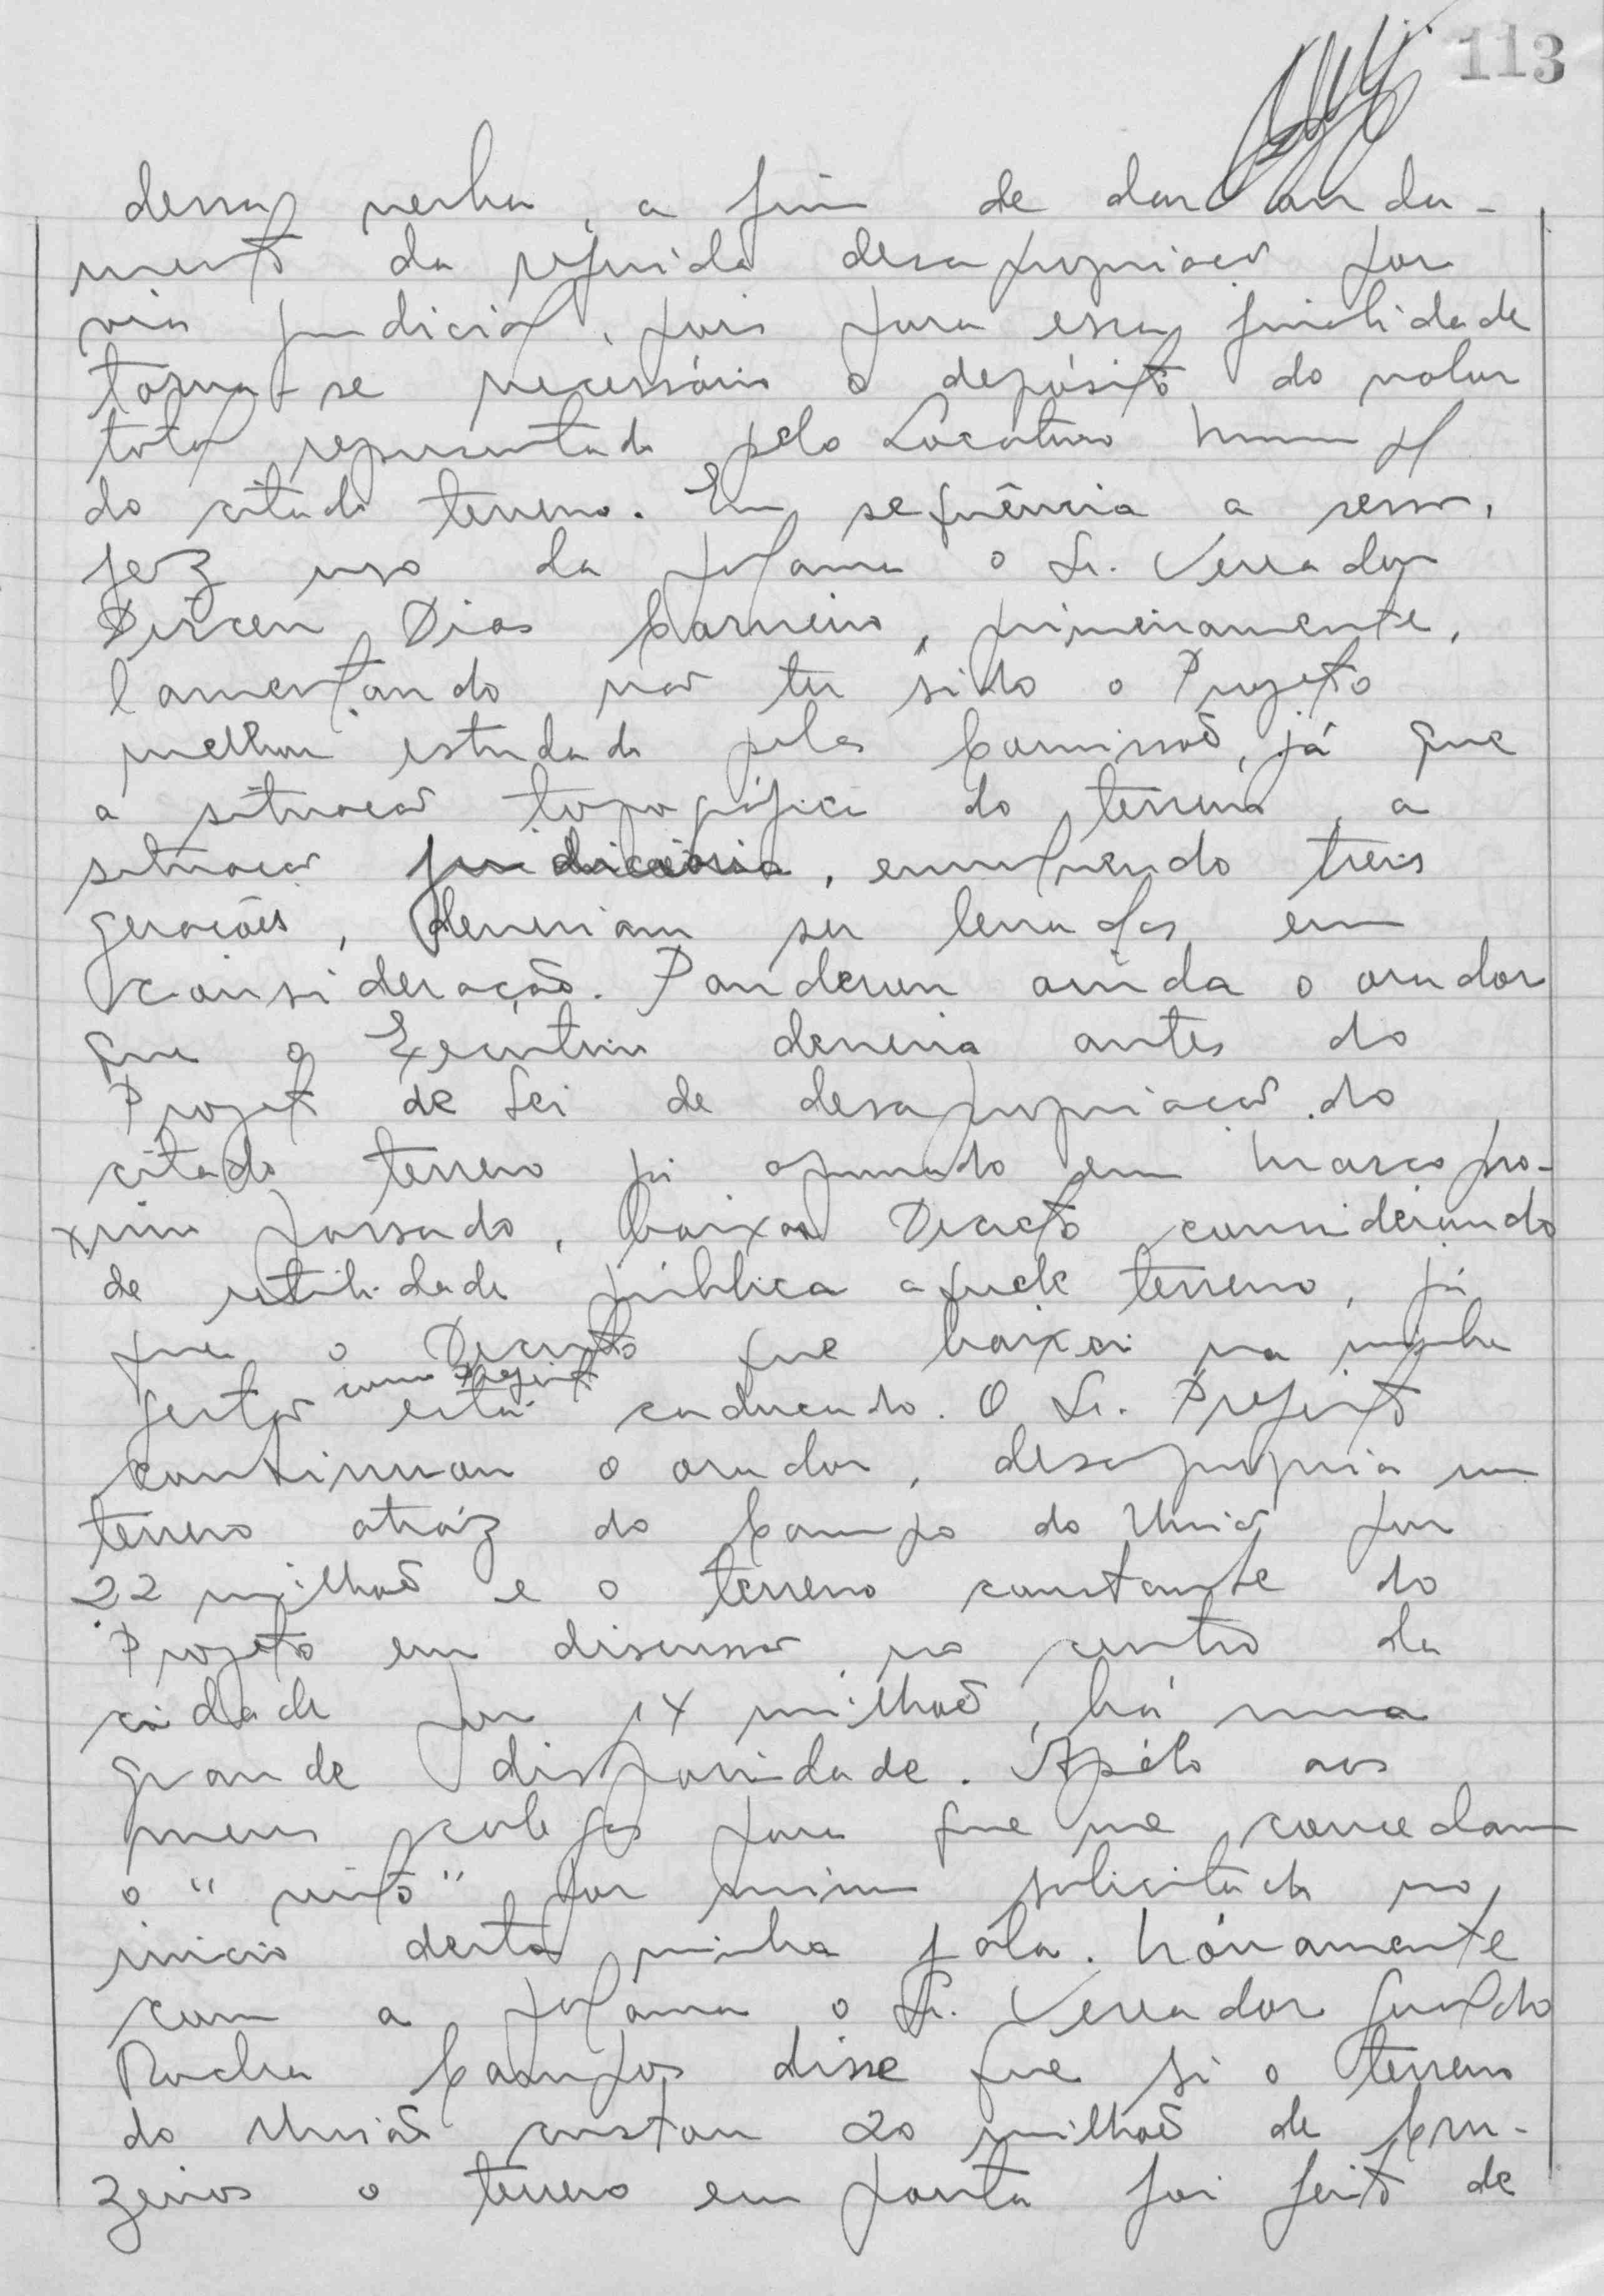 113
dessa verba, a fim de dar anda-
mento da referida desapropriação por
via judicial, pois para essa finalidade
torna-se necessário o depósito do valor
total representado pelo
do citado terreno. Em sefuência a sessão,
fez uso da palavra o Sr. Vereador
Dirceu Dias Carneiro, primeiramente,
lamentando não ter sido o Projeto
melhor estudado pelas Comissoẽ, já que
a situação topográfica do terreno, a
situação judiciária, envolvendo treis
gerações, deveriam ser levados em
consideração. Ponderou ainda o orador
que o Executivo deveria antes do
Projeto de Lei de desapropriação do
citado terreno já aprovado em Março pro-
ximo passado, baixar Decreto considerando
de utilidade pública aquele terreno, já
que o Decreto que baixei na minha
gestão como Prefeito está caducado. O Sr. Prefeito
continuou o orador, desapropria um
terreno atráz do Campo do União por
22 milhoẽ e o terreno constante do
Projeto em discussão, no centro da
cidade por 14 milhoẽ, há uma
grande disparidade. Apélo aos
meus colegas para que me concedam
o "visto" por mim solicitado no
inicio desta minha fala. Nóvamente
com a palavra o Sr. Vereador
Rocha Campos disse que si o terreno
do União custou 20 milhoẽ de Cru-
zeiros o terreno em pauta foi feito de